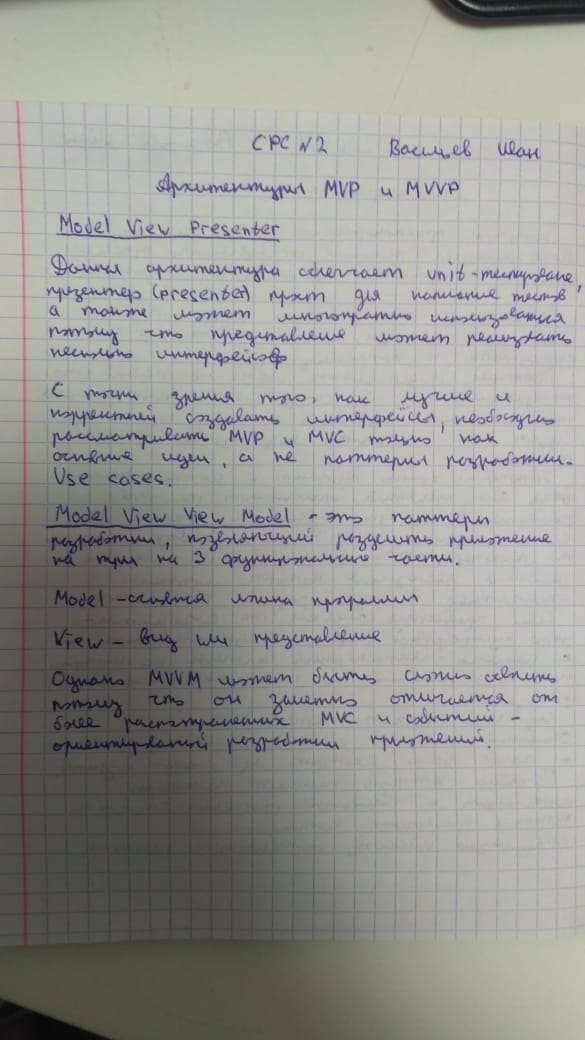 СРС №2 Васильев Иван
Архитектуры MVP и MVVP
Model View Presenter
Данная архитектура облегчает unit-тестирование,
презентер (presenter) прост для написание тестов
а также может многократно использоваться
потому что представление может реализовать
несколько интерфейсов
С точки зрения того, как лучше и
корректней создавать интерфейсы, необходимо
рассматривать MVP и MVC только как
основные идеи, а не паттерны разработки.
Use cases.
Model View View Model - это паттерн
разработки, позволяющий разделить приложение
на три на 3 функциональные части.
Model - основная логика программы
View - вид или представление
Однако MVVM может быть сложно освоить
потому что он заметно отличается от
более распространенных MVC и событий -
ориентированной разработки приложений.